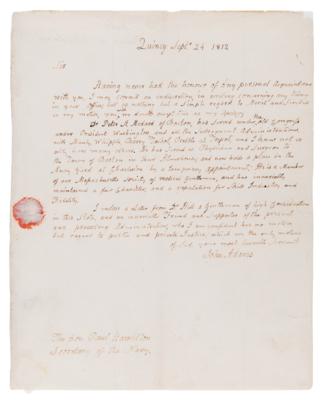 Quincy Sept. 24 1812
Sir
Having never had the honour of any personal Acquaintance
with you, I may commit an indiscretion in writing concerning any Thing
in your office, but as nothing but a Simple regard to Merit and Justice
is my motive, you, no doubt, will be my Apology
Dr Peter St. Medard of Boston, has served under the Congress
under President Washington, and all the Subsequent Administrations,
with Manly, Whipple, Talbot, Preble and I know not
with how many others. He has served as Physician and Surgeon to
the Town of Boston in their Almshouse, and now holds a place in the
Navy Yard at Charleston by a temporary appointment. He is a Member
of our Massachusetts Society of medical Gentlemen, and has invariably
maintained a fair Character, and a reputation for Skill Industry and
Fidelity.
I inclose a Letter from Dr a Gentleman of high Consideration
in this State, and an invariable Friend and Supporter of the present
and preceding Administration, who I am confident has no motive
but regard to public and private Justice, which are the only motives
of Sir your most humble Servant
John Adams
The Hon. Paul Hamilton
Secretary of the Navy.